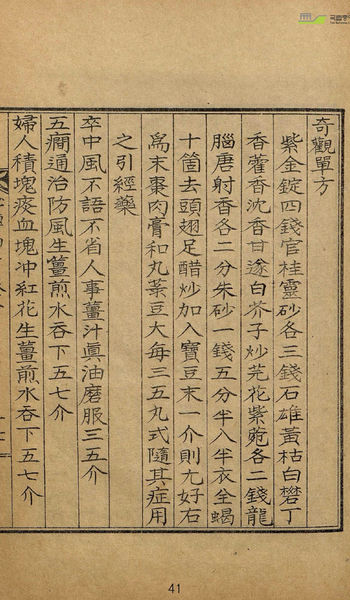 奇觀單方
紫金錠四錢官桂靈砂各三錢石雄黃枯白礬丁
香藿香沈香甘遂白芥子炒芫花紫菀各二錢龍
腦唐射香各二分朱砂一錢五分半八半衣全蝎
十箇去頭翅足醋炒加入寶豆末一介則尤好右
爲末棗肉膏和丸菉豆大每三五丸式隨其症用
之引經藥
卒中風不語不省人事薑汁眞油磨服三五介
五癎通治防風生薑煎水吞下五七介
婦人積塊痰血塊冲紅花生薑煎水吞下五七介
41